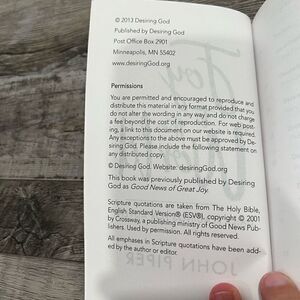 © 2013 Desiring God
Published by Desiring God
Post Office Box 2901
Minneapolis, MN 55402
www.desiringGod.org
Permissions
You are permitted and encouraged to reproduce and
distribute this material in any format provided that you
do not alter the wording in any way and do not charge
a fee beyond the cost of reproduction. For web post-
ing, a link to this document on our website is required.
Any exceptions to the above must be approved by De-
siring God. Please include the following statement on
any distributed copy:
© Desiring God. Website: desiringGod.org
This book was previously published by Desiring
God as Good News of Great Joy.
Scripture quotations are taken from The Holy Bible,
English Standard Version® (ESV®), copyright © 2001
by Crossway, a publishing ministry of Good News Pub-
lishers. Used by permission. All rights reserved.
All emphases in Scripture quotations have been add-
ed by the author or editor.
JOHN PIPER